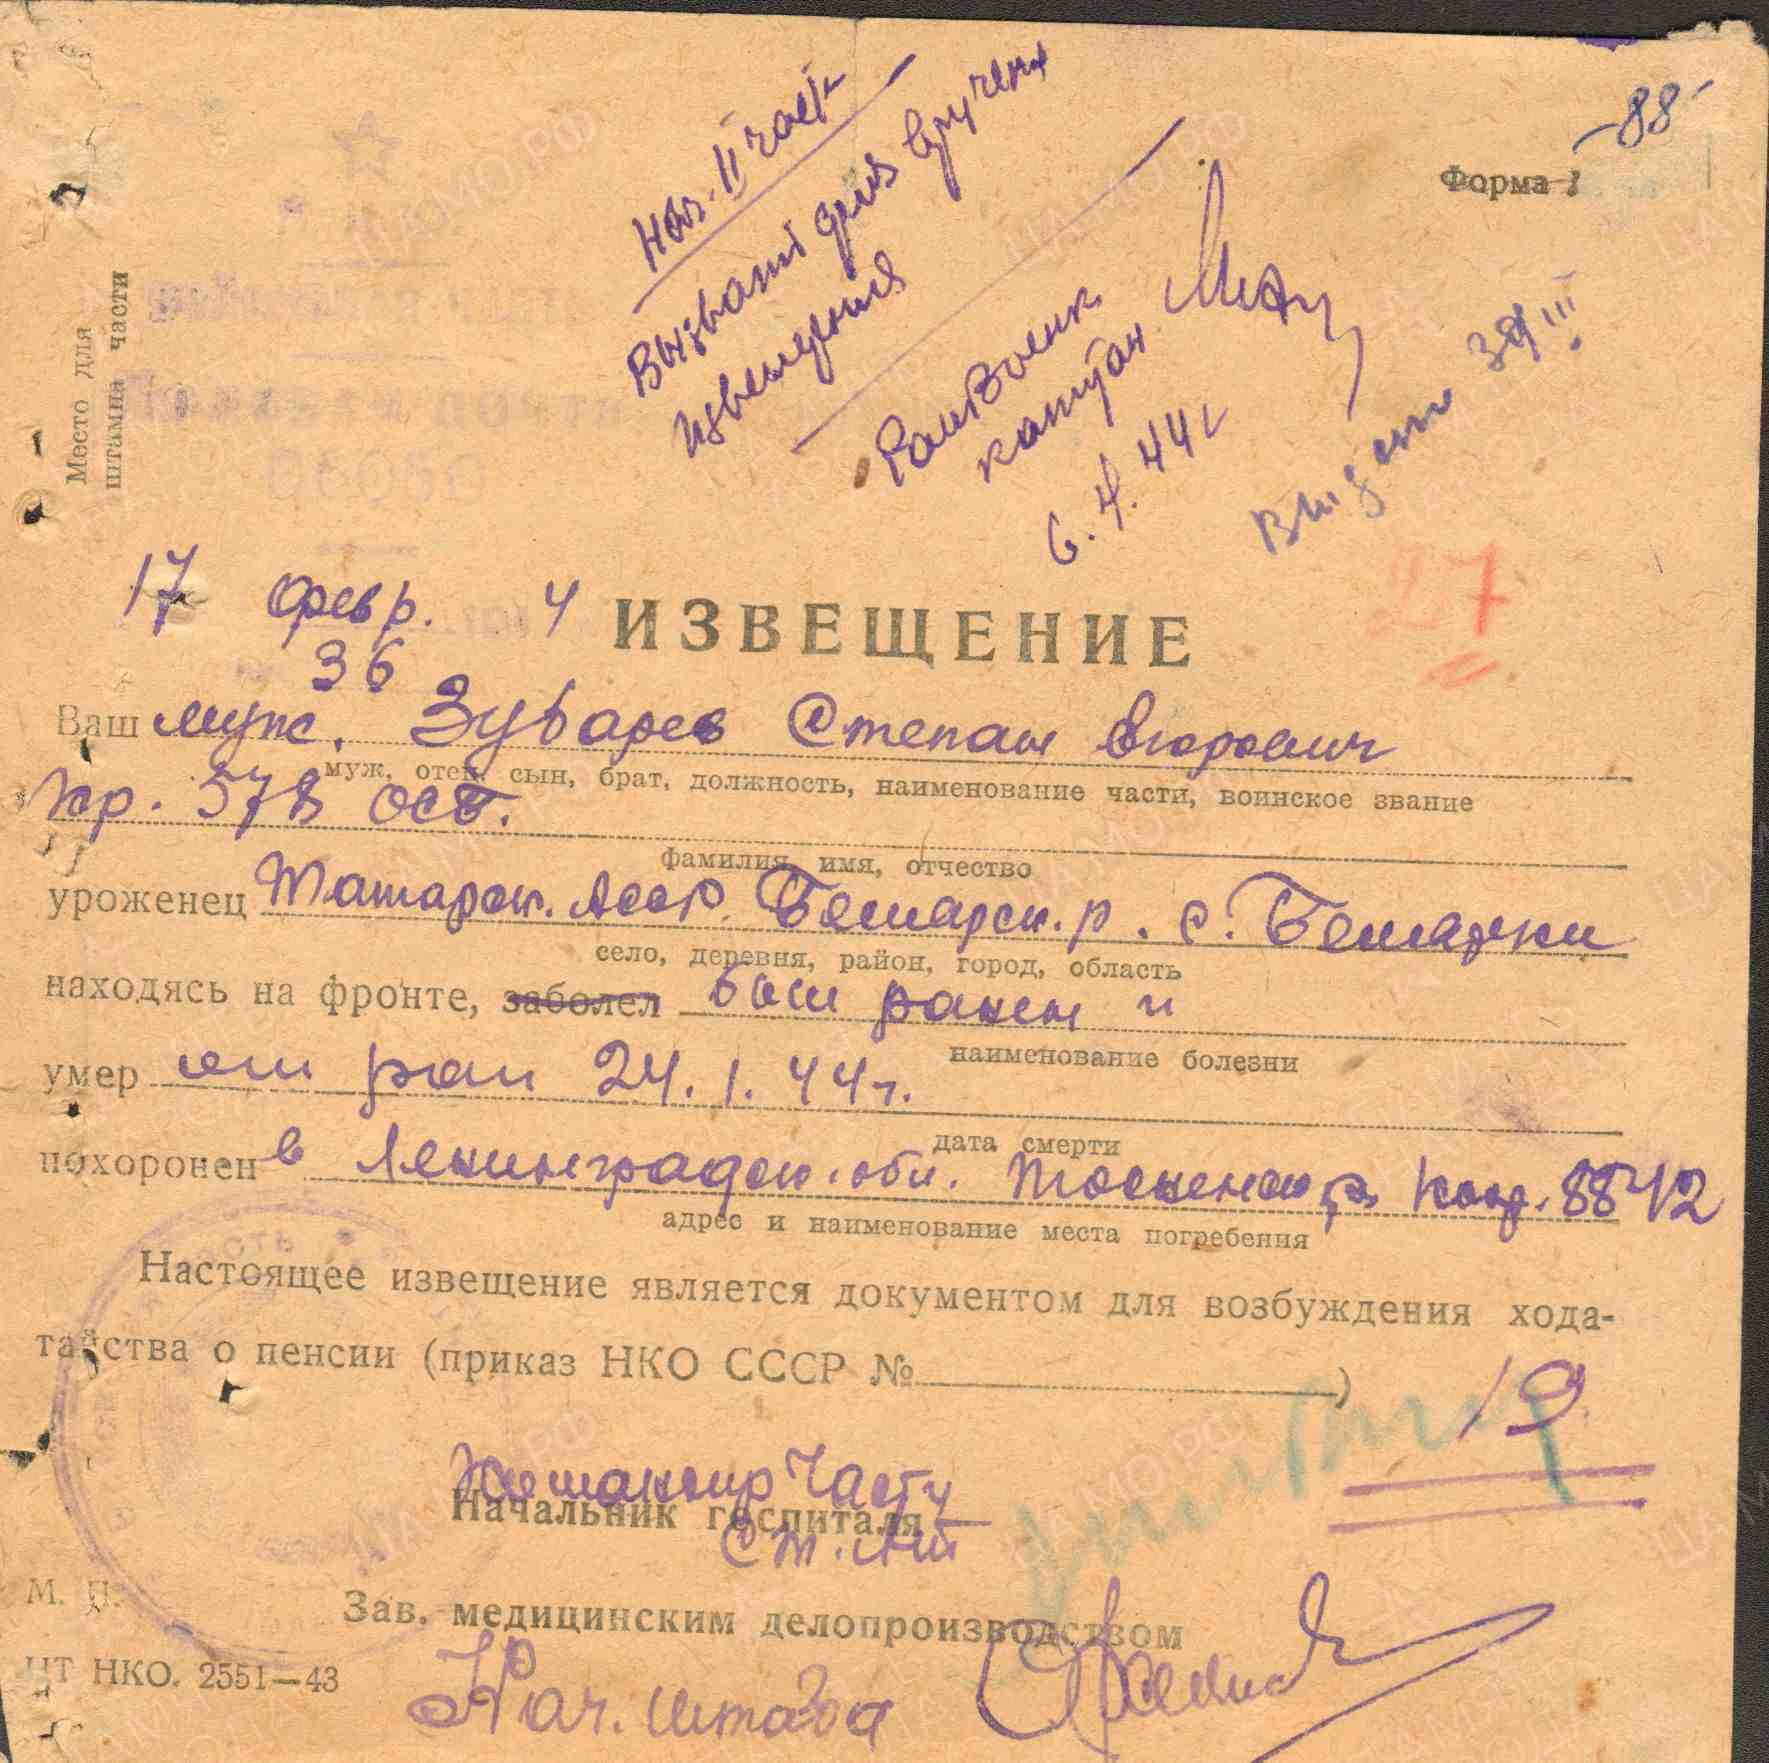 -88-
Форма 1
Место для
штампа части
Нач. II части
Вызвать для вручения
извещения
Райвоенк.
капитан
6.4.44 г
27
17 февр. 4
36
ИЗВЕЩЕНИЕ
Ваш муж. Зубарев Степан Егорович
муж, отец, сын, брат, должность, наименование части, воинское звание
кр. 578 ОСБ.
фамилия, имя, отчество
уроженец Татарск. АССР. р. с.
село, деревня, район, город, область
находясь на фронте, заболел был ранен и
наименование болезни
умер от ран 24.1.44г.
дата смерти
похоронен в Ленинградск. обл. Тосненск р.
адрес и наименование места погребения
Настоящее извещение является документом для возбуждения хода-
тайства о пенсии (приказ НКО СССР № )
19
Командир части
Начальник госпиталя
ст. л-т
М. П.
Зав. медицинским делопроизводством
ЦТ НКО. 2551—43
Нач. штаба
ЦАМО.РФ